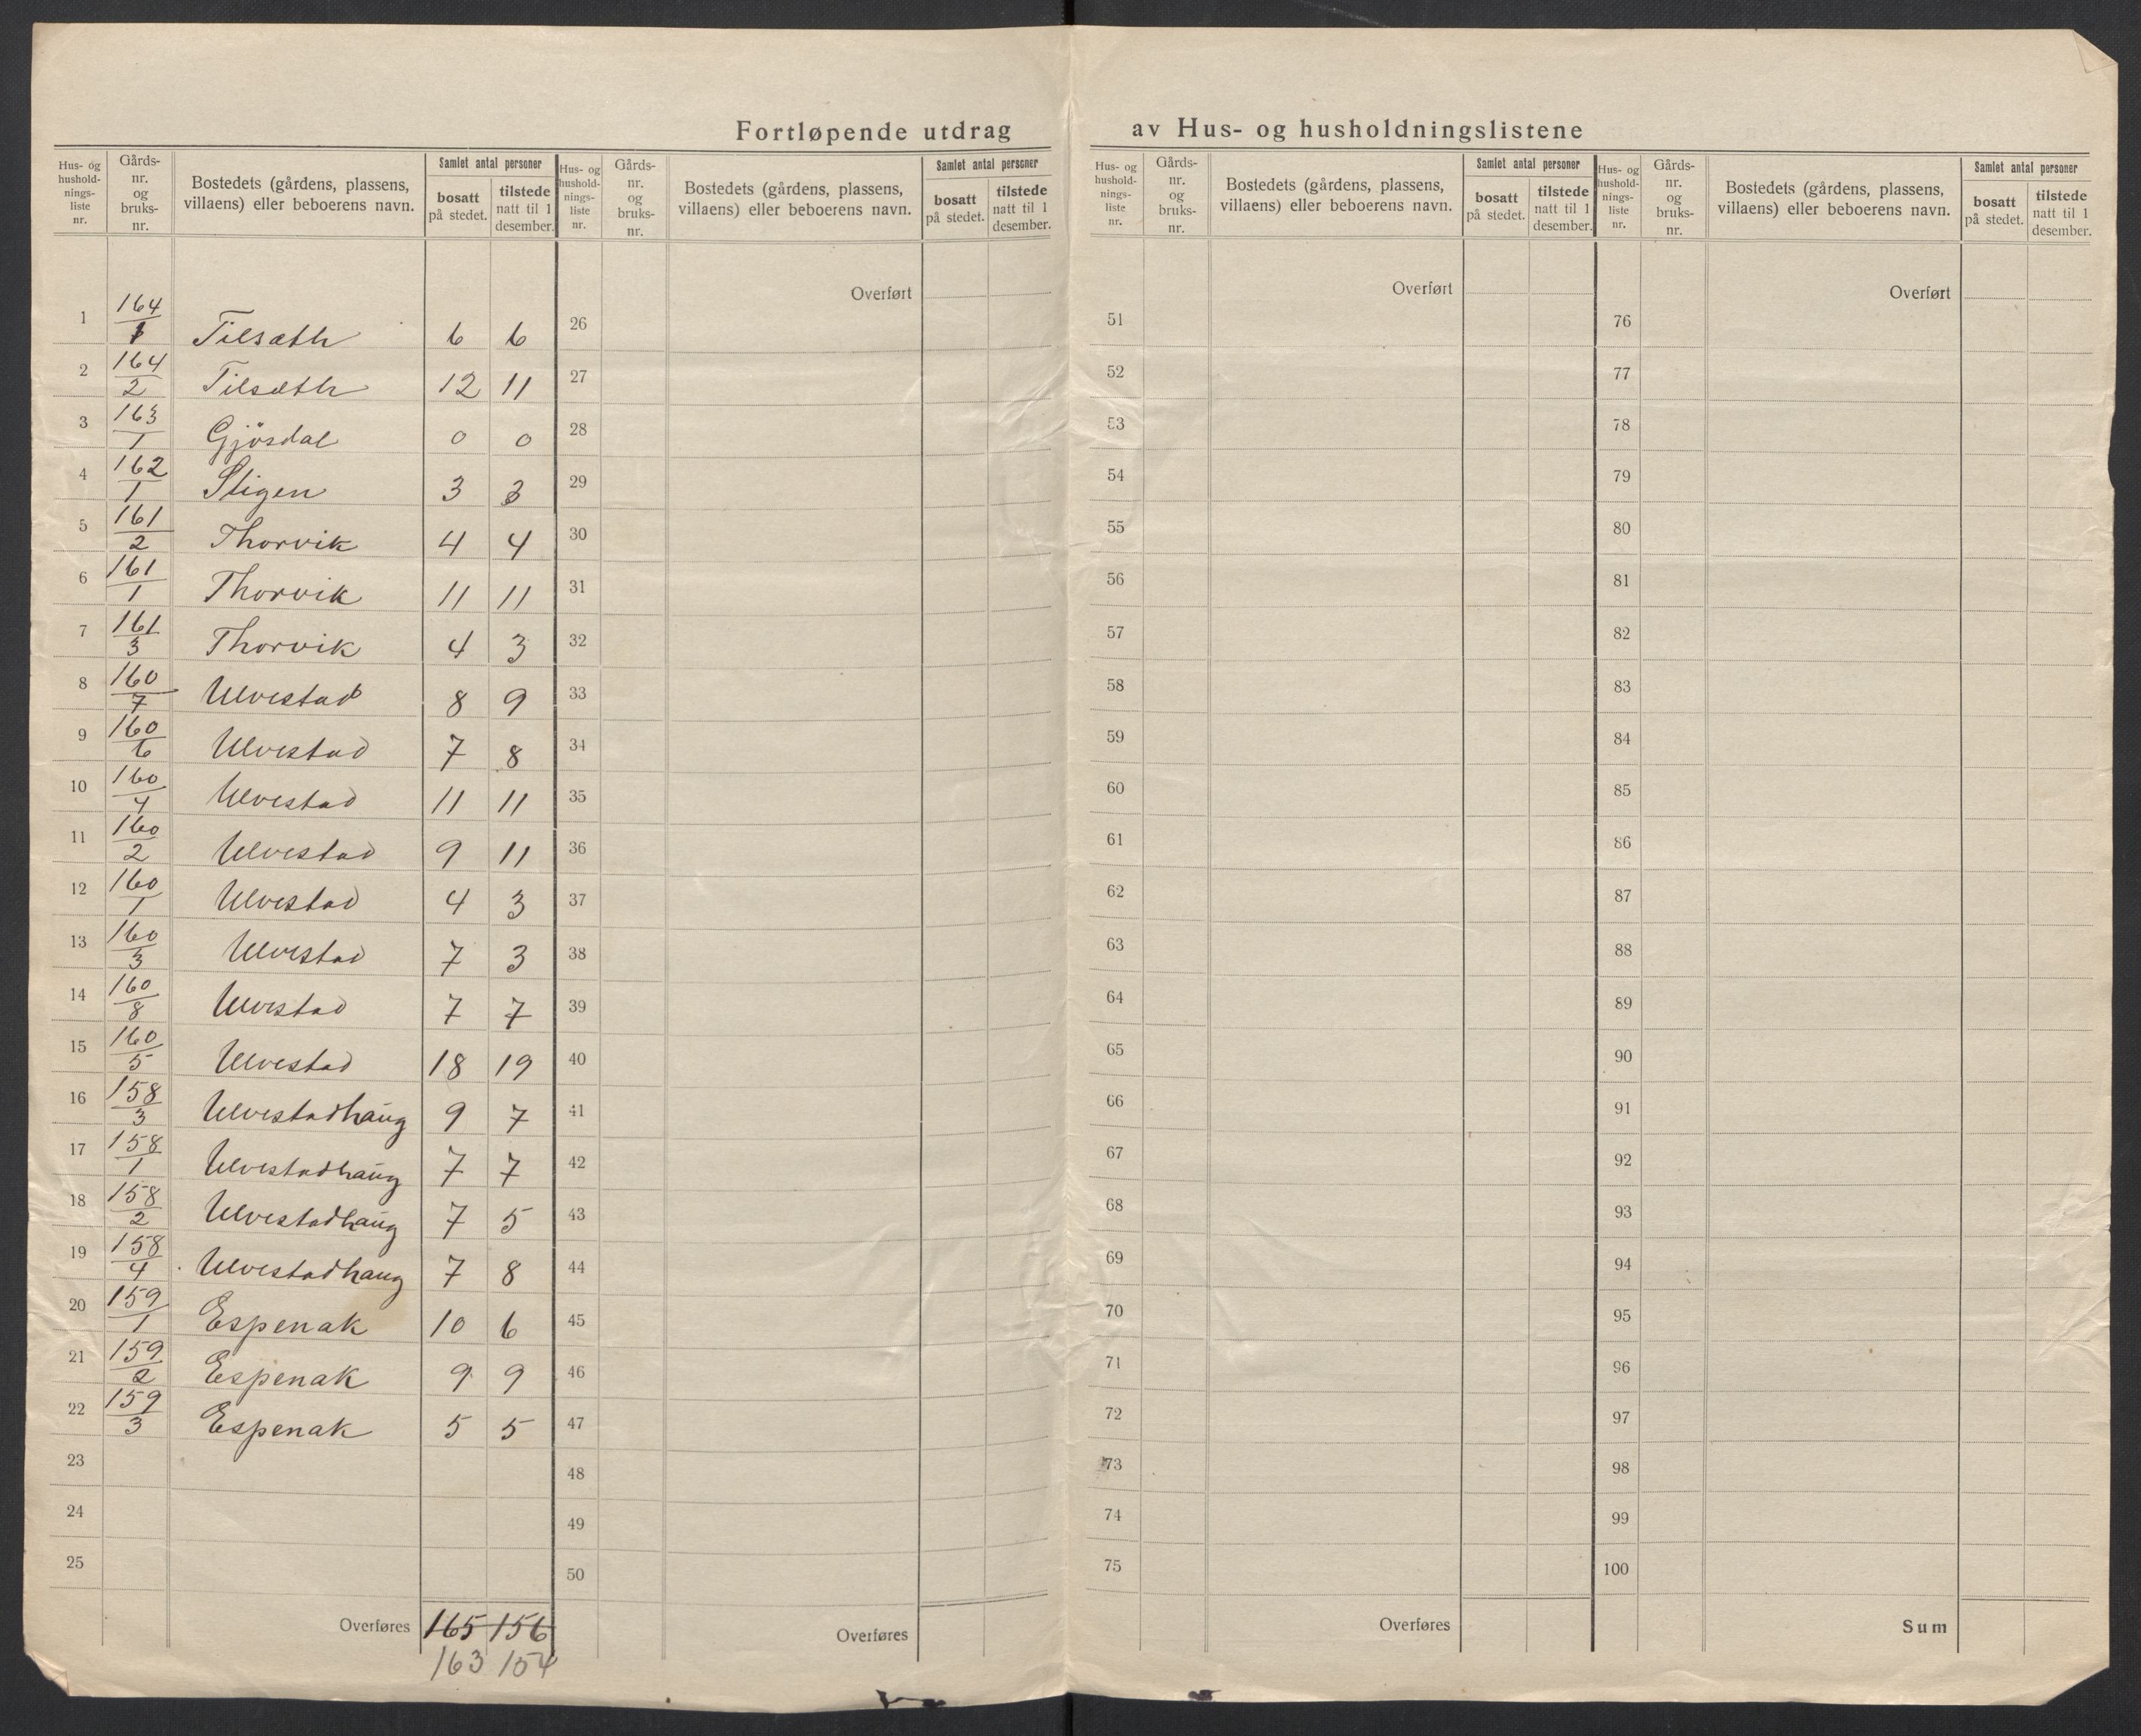 Fortløpende utdrag av Hus- og husholdningslistene
Hus- og husholdnings-liste nr. | Gårds-nr. og bruks-nr. | Bostedets (gårdens, plassens, villaens) eller beboerens navn. | Samlet antal personer | bosatt på stedet. | tilstede natt til 1 desember.
1 164/1 Tilsæth 6 6
2 164/2 Tilsæth 12 11
3 163/1 Gjösdal 0 0
4 162/1 Stigen 3 3
5 161/2 Thorvik 4 4
6 161/1 Thorvik 11 11
7 161/3 Thorvik 4 3
8 160/7 Ulvestad 8 9
9 160/6 Ulvestad 7 8
10 160/4 Ulvestad 11 11
11 160/2 Ulvestad 9 11
12 160/1 Ulvestad 4 3
13 160/3 Ulvestad 7 3
14 160/8 Ulvestad 7 7
15 160/5 Ulvestad 18 19
16 158/3 Ulvestadhaug 9 7
17 158/1 Ulvestadhaug 7 7
18 158/2 Ulvestadhaug 7 5
19 158/4 Ulvestadhaug 7 8
20 159/1 Espenak 10 6
21 159/2 Espenak 9 9
22 159/3 Espenak 5 5
23
24
25
Overføres 165 156
163 154
Hus- og husholdnings-liste nr. | Gårds-nr. og bruks-nr. | Bostedets (gårdens, plassens, villaens) eller beboerens navn. | Samlet antal personer | bosatt på stedet. | tilstede natt til 1 desember.
Overført
26
27
28
29
30
31
32
33
34
35
36
37
38
39
40
41
42
43
44
45
46
47
48
49
50
Overføres
Hus- og husholdnings-liste nr. | Gårds-nr. og bruks-nr. | Bostedets (gårdens, plassens, villaens) eller beboerens navn. | Samlet antal personer | bosatt på stedet. | tilstede natt til 1 desember.
Overført
51
52
53
54
55
56
57
58
59
60
61
62
63
64
65
66
67
68
69
70
71
72
73
74
75
Overføres
Hus- og husholdnings-liste nr. | Gårds-nr. og bruks-nr. | Bostedets (gårdens, plassens, villaens) eller beboerens navn. | Samlet antal personer | bosatt på stedet. | tilstede natt til 1 desember.
Overført
76
77
78
79
80
81
82
83
84
85
86
87
88
89
90
91
92
93
94
95
96
97
98
99
100
Sum